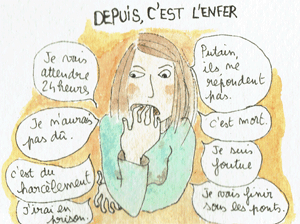 DEPUIS, C'EST L'ENFER
Je vais
attendre
24 heures
Je n'aurais
pas dû.
c'est du
harcèlement
J'irai en
prison.
Putain,
ils me
répondent
pas.
c'est mort.
Je suis
foutue
Je vais finir
sous les ponts.